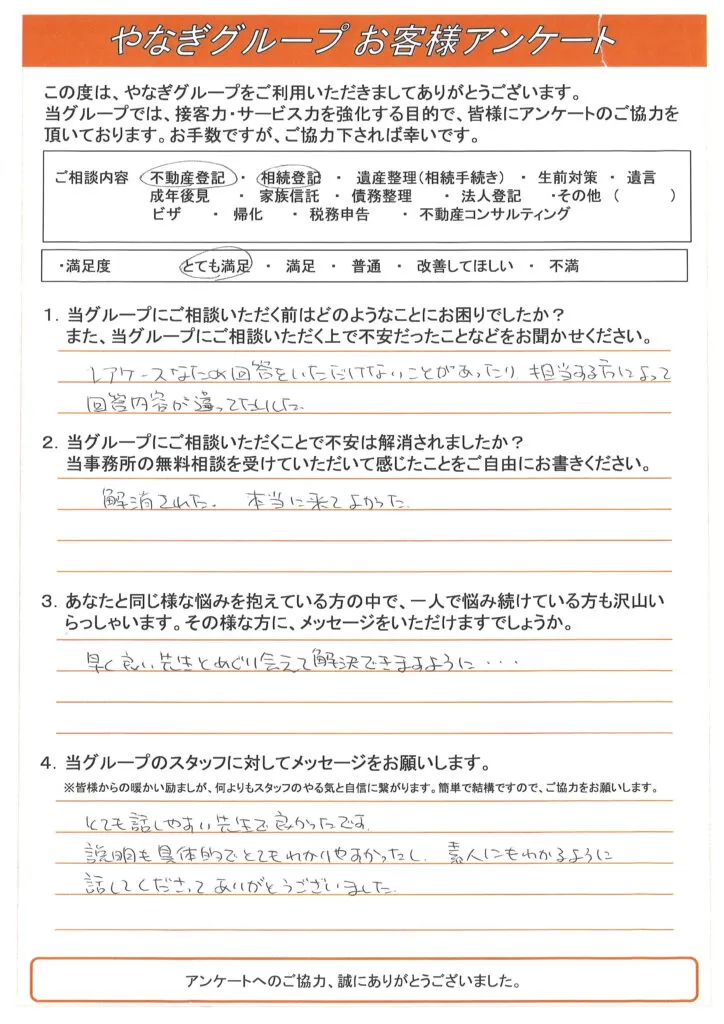 やなぎグループ お客様アンケート
この度は、やなぎグループをご利用いただきましてありがとうございます。
当グループでは、接客力・サービス力を強化する目的で、皆様にアンケートのご協力を
頂いております。お手数ですが、ご協力下されば幸いです。
ご相談内容 不動産登記 ・ 相続登記 ・ 遺産整理(相続手続き) ・ 生前対策 ・ 遺言
成年後見 ・ 家族信託 ・ 債務整理 ・ 法人登記 ・その他 ( )
ビザ ・ 帰化 ・ 税務申告 ・ 不動産コンサルティング
・満足度 とても満足 ・ 満足 ・ 普通 ・ 改善してほしい ・ 不満
1. 当グループにご相談いただく前はどのようなことにお困りでしたか?
また、当グループにご相談いただく上で不安だったことなどをお聞かせください。
レアケースなため回答をいただけないことがあったり 担当する方によって
回答内容が違ってたりした.
2. 当グループにご相談いただくことで不安は解消されましたか?
当事務所の無料相談を受けていただいて感じたことをご自由にお書きください。
解消された. 本当に来てよかった.
3. あなたと同じ様な悩みを抱えている方の中で、一人で悩み続けている方も沢山い
らっしゃいます。その様な方に、メッセージをいただけますでしょうか。
早く良い先生とめぐり会えて解決できますように・・・
4. 当グループのスタッフに対してメッセージをお願いします。
※皆様からの暖かい励ましが、何よりもスタッフのやる気と自信に繋がります。簡単で結構ですので、ご協力をお願いします。
とても話しやすい先生で良かったです.
説明も具体的でとてもわかりやすかったし. 素人にもわかるように
話してくださってありがとうございました.
アンケートへのご協力、誠にありがとうございました。